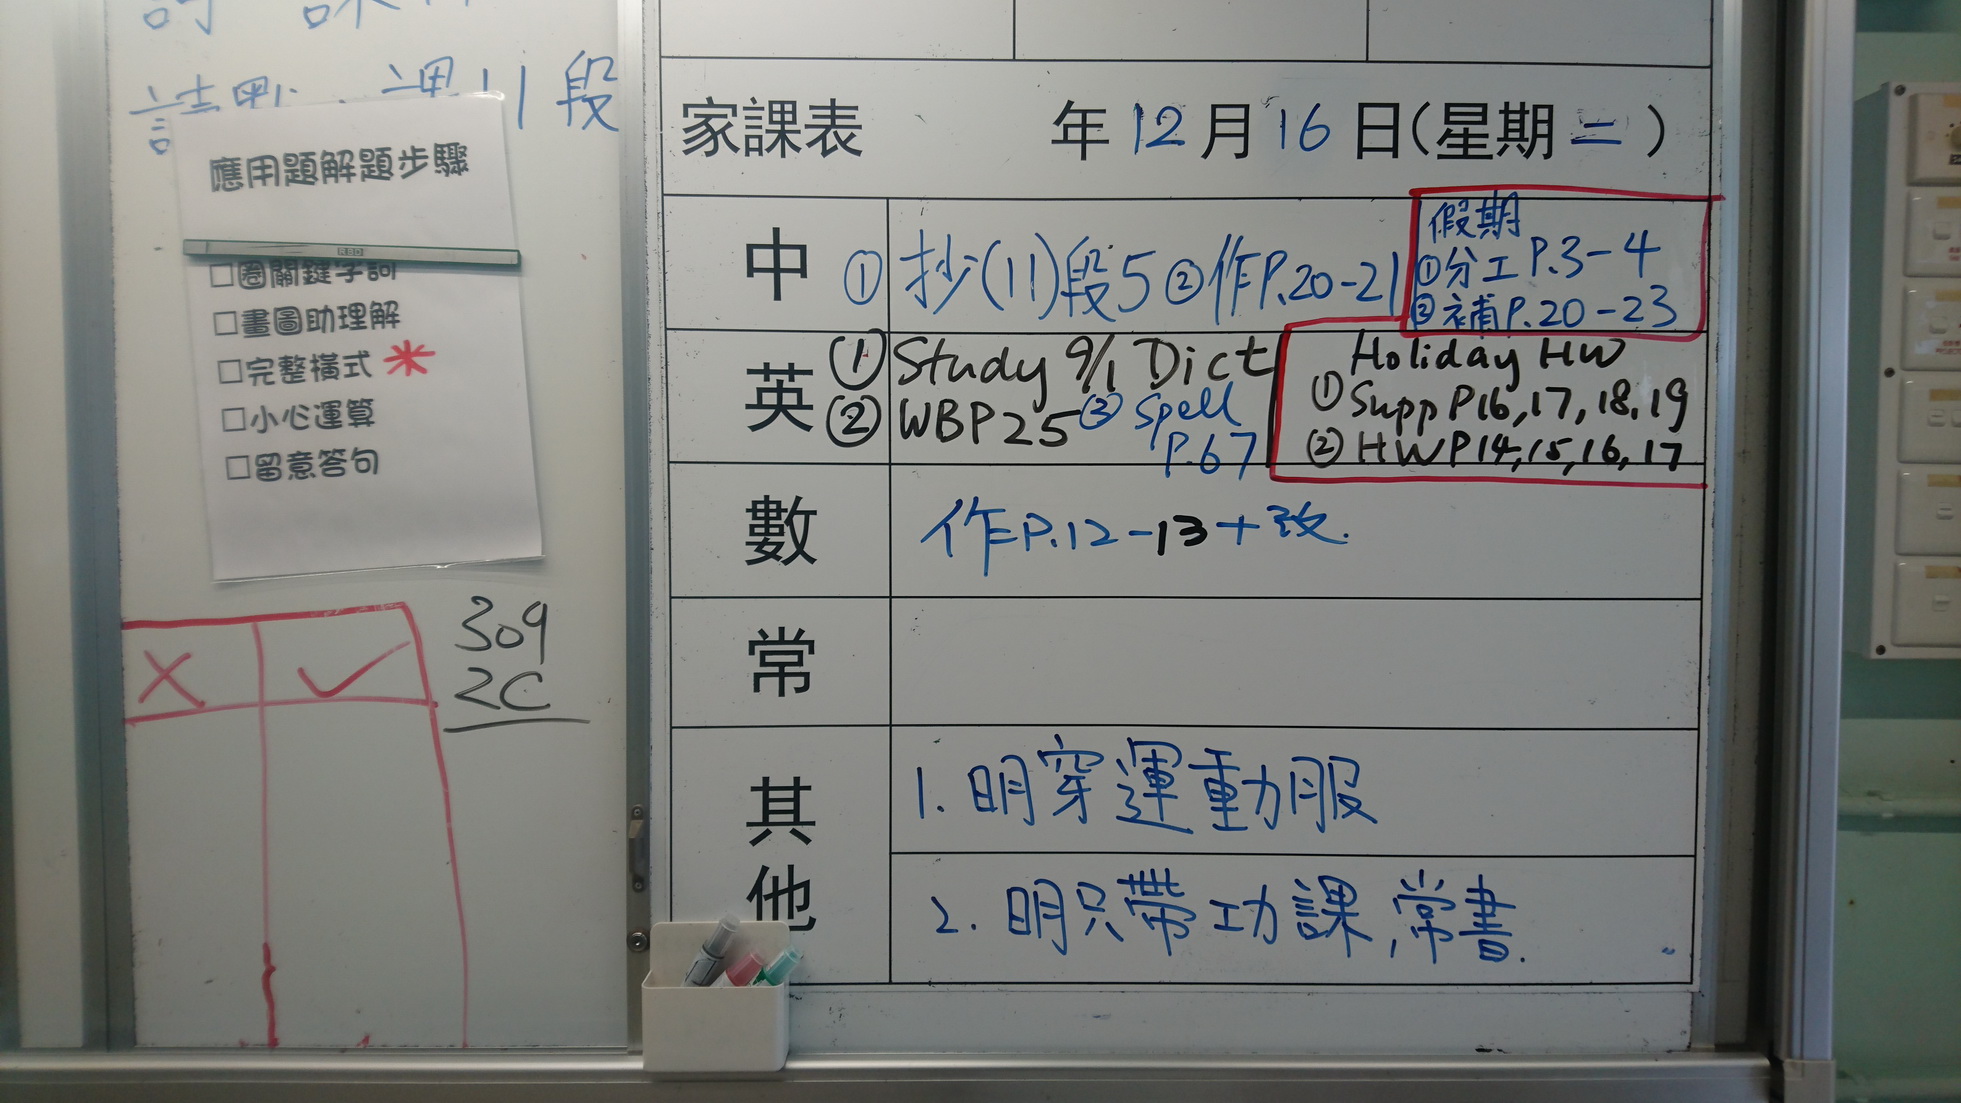 課11段
應用題解題步驟
□圈關鍵字詞
□畫圖助理解
□完整橫式
□小心運算
□留意答句
309
2C
家課表 年12月16日(星期二)
中 ①抄(11)段5 ②作P.20-21
假期
①分工P.3-4
②補P.20-23
英 ①Study 9/1 Dict
②WBP25 ③Spell
P.67
Holiday HW
①Supp P16,17,18,19
②HWP14,15,16,17
數 作P.12-13+改.
常
其他
1.明穿運動服
2.明只帶功課,常書.